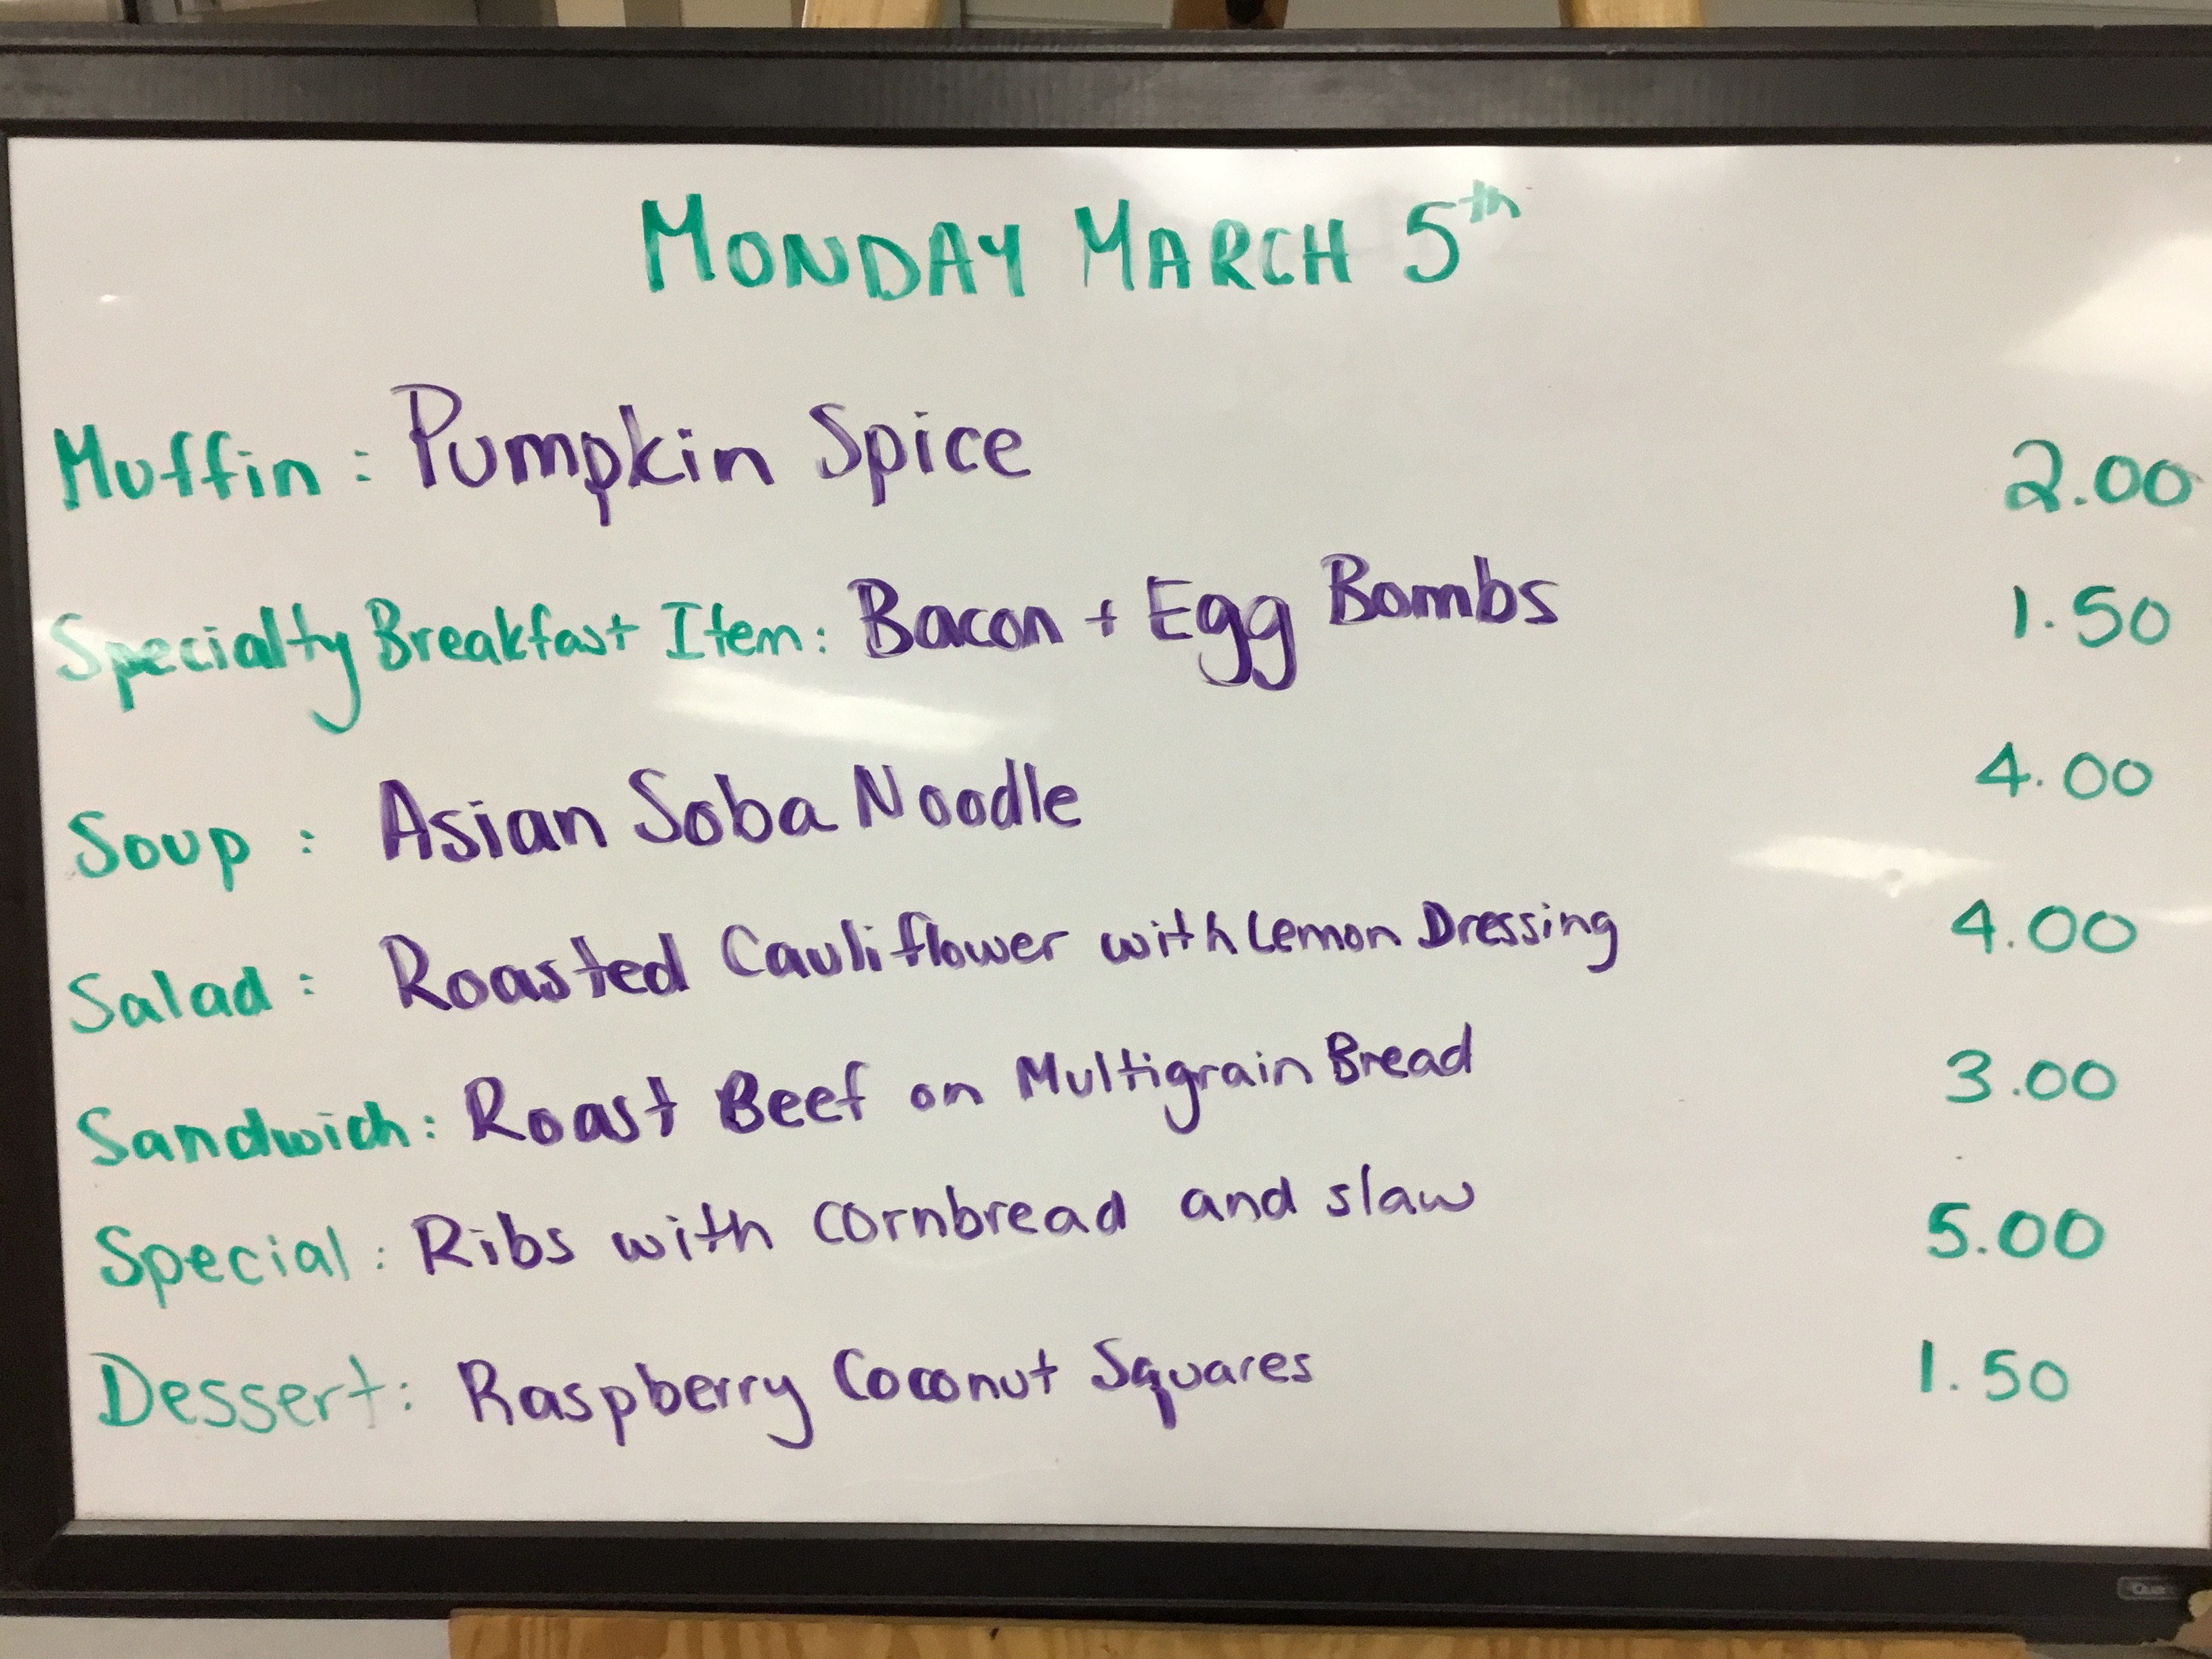 MONDAY MARCH 5th
Muffin: Pumpkin Spice 2.00
Specialty Breakfast Item: Bacon + Egg Bombs 1.50
Soup: Asian Soba Noodle 4.00
Salad: Roasted Cauliflower with Lemon Dressing 4.00
Sandwich: Roast Beef on Multigrain Bread 3.00
Special: Ribs with cornbread and slaw 5.00
Dessert: Raspberry Coconut Squares 1.50